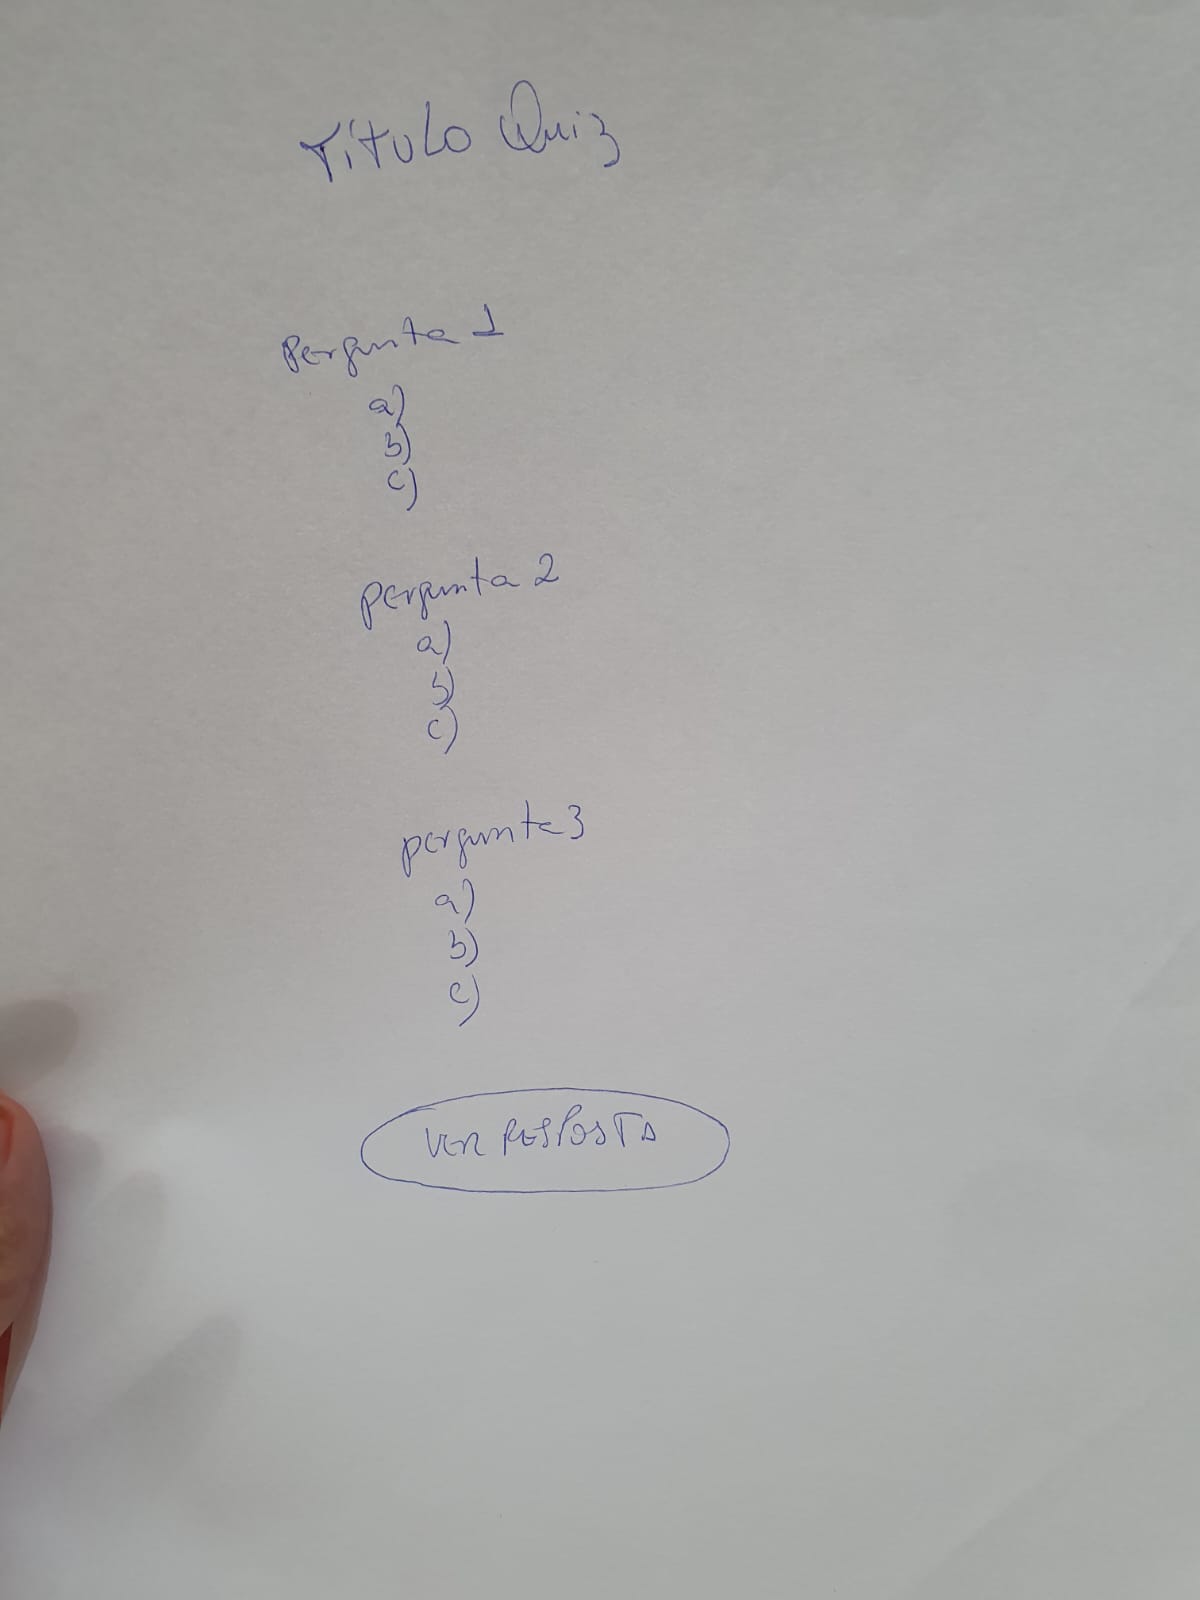 Título Quiz
Pergunta 1
a)
b)
c)
pergunta 2
a)
b)
c)
pergunta 3
a)
b)
c)
VER RESPOSTA